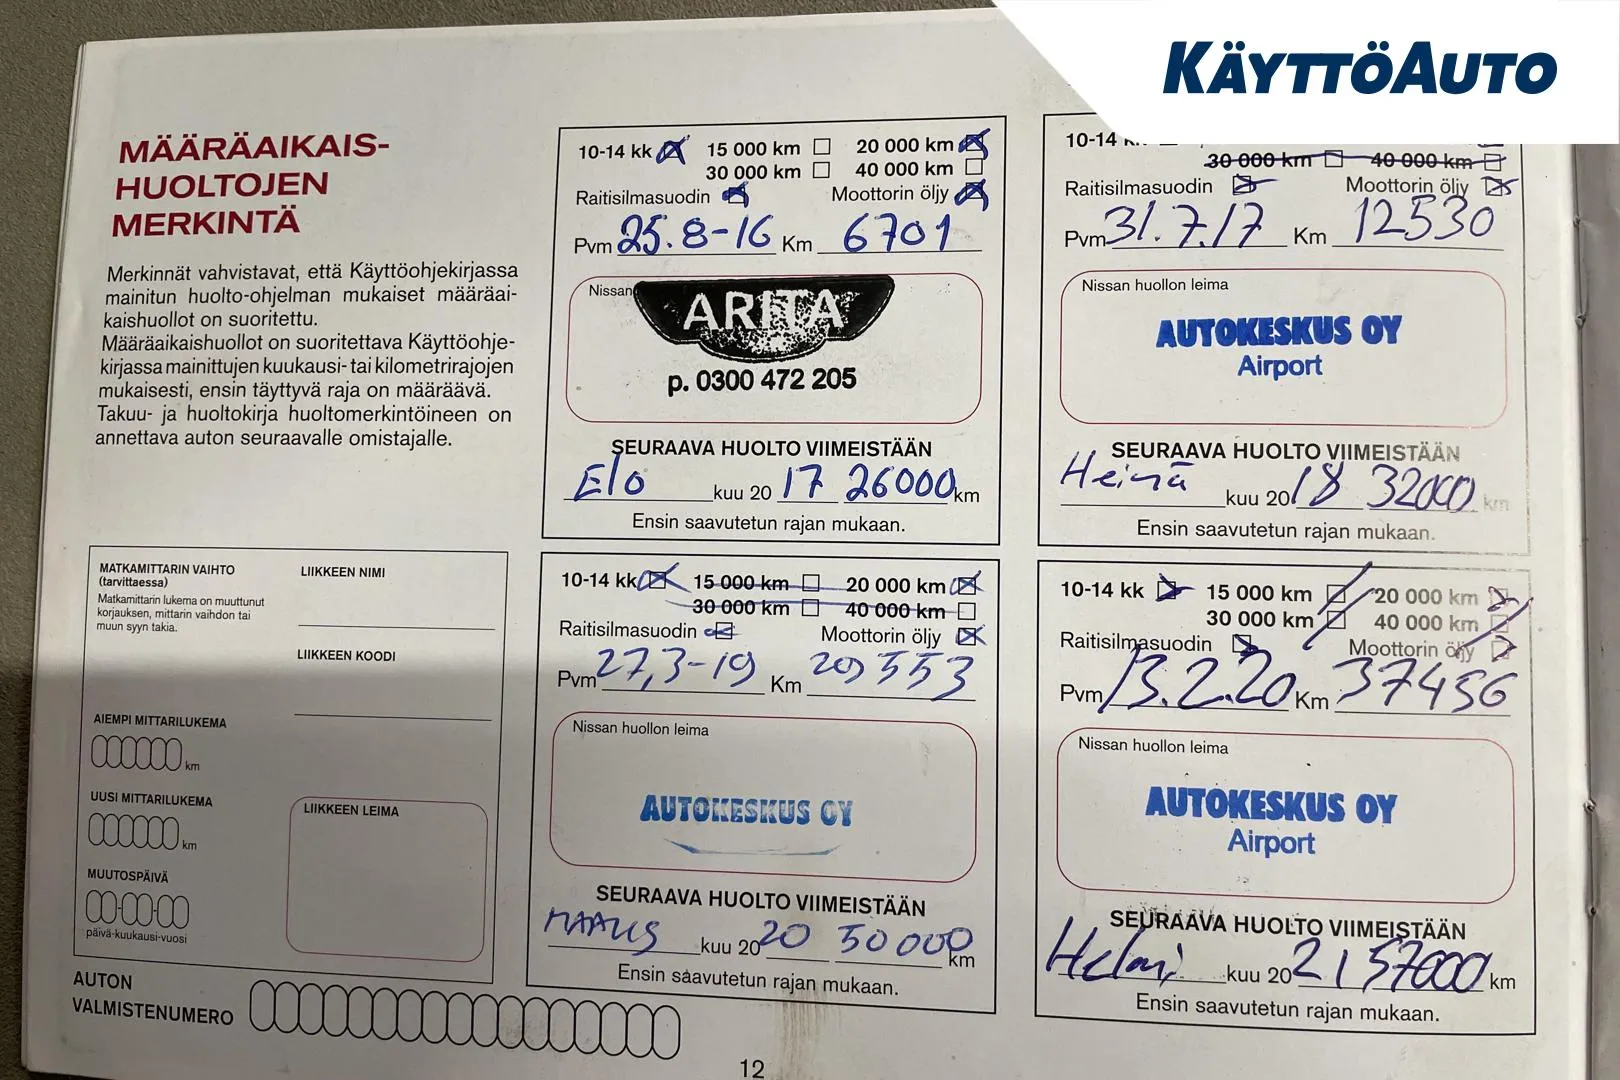 KÄYTTÖAUTO
MÄÄRÄAIKAIS-
HUOLTOJEN
MERKINTÄ
Merkinnät vahvistavat, että Käyttöohjekirjassa
mainitun huolto-ohjelman mukaiset määräai-
kaishuollot on suoritettu.
Määräaikaishuollot on suoritettava Käyttöohje-
kirjassa mainittujen kuukausi- tai kilometrirajojen
mukaisesti, ensin täyttyvä raja on määräävä.
Takuu- ja huoltokirja huoltomerkintöineen on
annettava auton seuraavalle omistajalle.
MATKAMITTARIN VAIHTO
(tarvittaessa)
Matkamittarin lukema on muuttunut
korjauksen, mittarin vaihdon tai
muun syyn takia.
LIIKKEEN NIMI
LIIKKEEN KOODI
AIEMPI MITTARILUKEMA
km
UUSI MITTARILUKEMA
km
MUUTOSPÄIVÄ
päivä-kuukausi-vuosi
LIIKKEEN LEIMA
AUTON
VALMISTENUMERO
10-14 kk 15 000 km 20 000 km
30 000 km 40 000 km
Raitisilmasuodin Moottorin öljy
Pvm 25.8-16 Km 6701
Nissan
ARITA
p. 0300 472 205
SEURAAVA HUOLTO VIIMEISTÄÄN
Elo kuu 20 17 26000 km
Ensin saavutetun rajan mukaan.
10-14
30 000 km 40 000 km
Raitisilmasuodin Moottorin öljy
Pvm 31.7.17 Km 12530
Nissan huollon leima
AUTOKESKUS OY
Airport
SEURAAVA HUOLTO VIIMEISTÄÄN
Heinä kuu 20 18 32000 km
Ensin saavutetun rajan mukaan.
10-14 kk 15 000 km 20 000 km
30 000 km 40 000 km
Raitisilmasuodin Moottorin öljy
Pvm 27,3-19 Km 29553
Nissan huollon leima
AUTOKESKUS OY
SEURAAVA HUOLTO VIIMEISTÄÄN
MAALIS kuu 20 20 50000 km
Ensin saavutetun rajan mukaan.
10-14 kk 15 000 km 20 000 km
30 000 km 40 000 km
Raitisilmasuodin Moottorin öljy
Pvm 13.2.20 Km 37456
Nissan huollon leima
AUTOKESKUS OY
Airport
SEURAAVA HUOLTO VIIMEISTÄÄN
Helmi kuu 20 21 57000 km
Ensin saavutetun rajan mukaan.
12